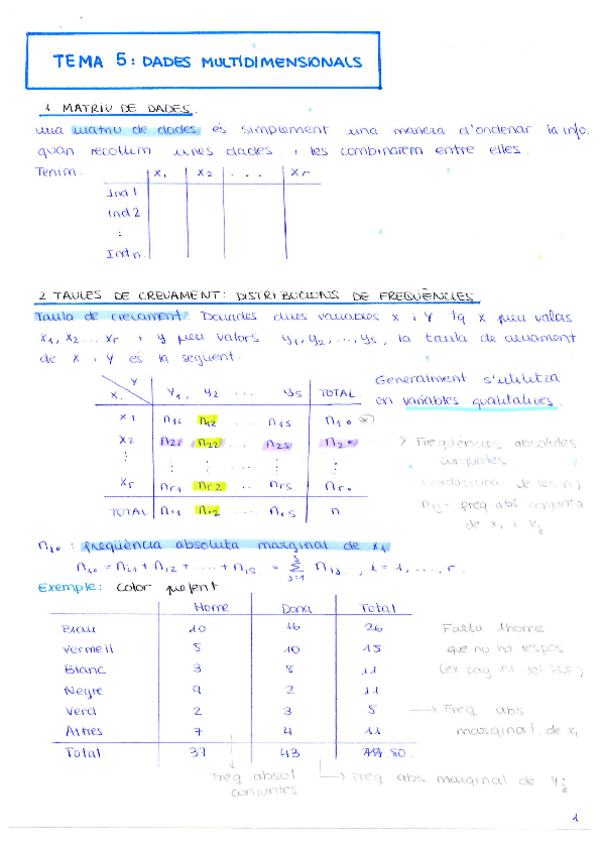 TEMA 5: DADES MULTIDIMENSIONALS
1 MATRIU DE DADES.
una matriu de dades és simplement una manera d'ordenar la info.
quan recollim unes dades i les combinarem entre elles.
Tenim: x1 x2 ... xr
Ind 1
Ind 2
:
Ind n.
2 TAULES DE CREUAMENT: DISTRIBUCIONS DE FREQÜÈNCIES
Taula de creuament. Donades dues variables x i Y tq x pren valors
x1, x2 ... xr i y pren valors y1, y2, ..., ys, la taula de creuament
de x i Y és la següent:
Generalment s'utilitza
en variables qualitatives.
x. Y y1, y2 ... ys TOTAL
x1 n11 n12 ... n1s n1•
x2 n21 n22 ... n2s n2•
: : : ... : :
xr nr1 nr2 ... nrs nr•
TOTAL n•1 n•2 ... n•s n
Freqüències absolutes
conjuntes
nij = freq abs conjunta
de xi i yj
ni• : freqüència absoluta marginal de xi
ni• = ni1 + ni2 + .... + nis = s Σ j=1 nij , i = 1, ..., r.
Exemple: color
Home Dona Total
Blau 10 16 26
Vermell 5 10 15
Blanc 3 8 11
Negre 9 2 11
Verd 2 3 5
Altres 7 4 11
Total 37 43 80
Falta 1 home
que no ha respos
(ex pag 11 del
→ Freq abs
marginal de xi
Freq absol
conjuntes
→ Freq abs marginal de yj
1